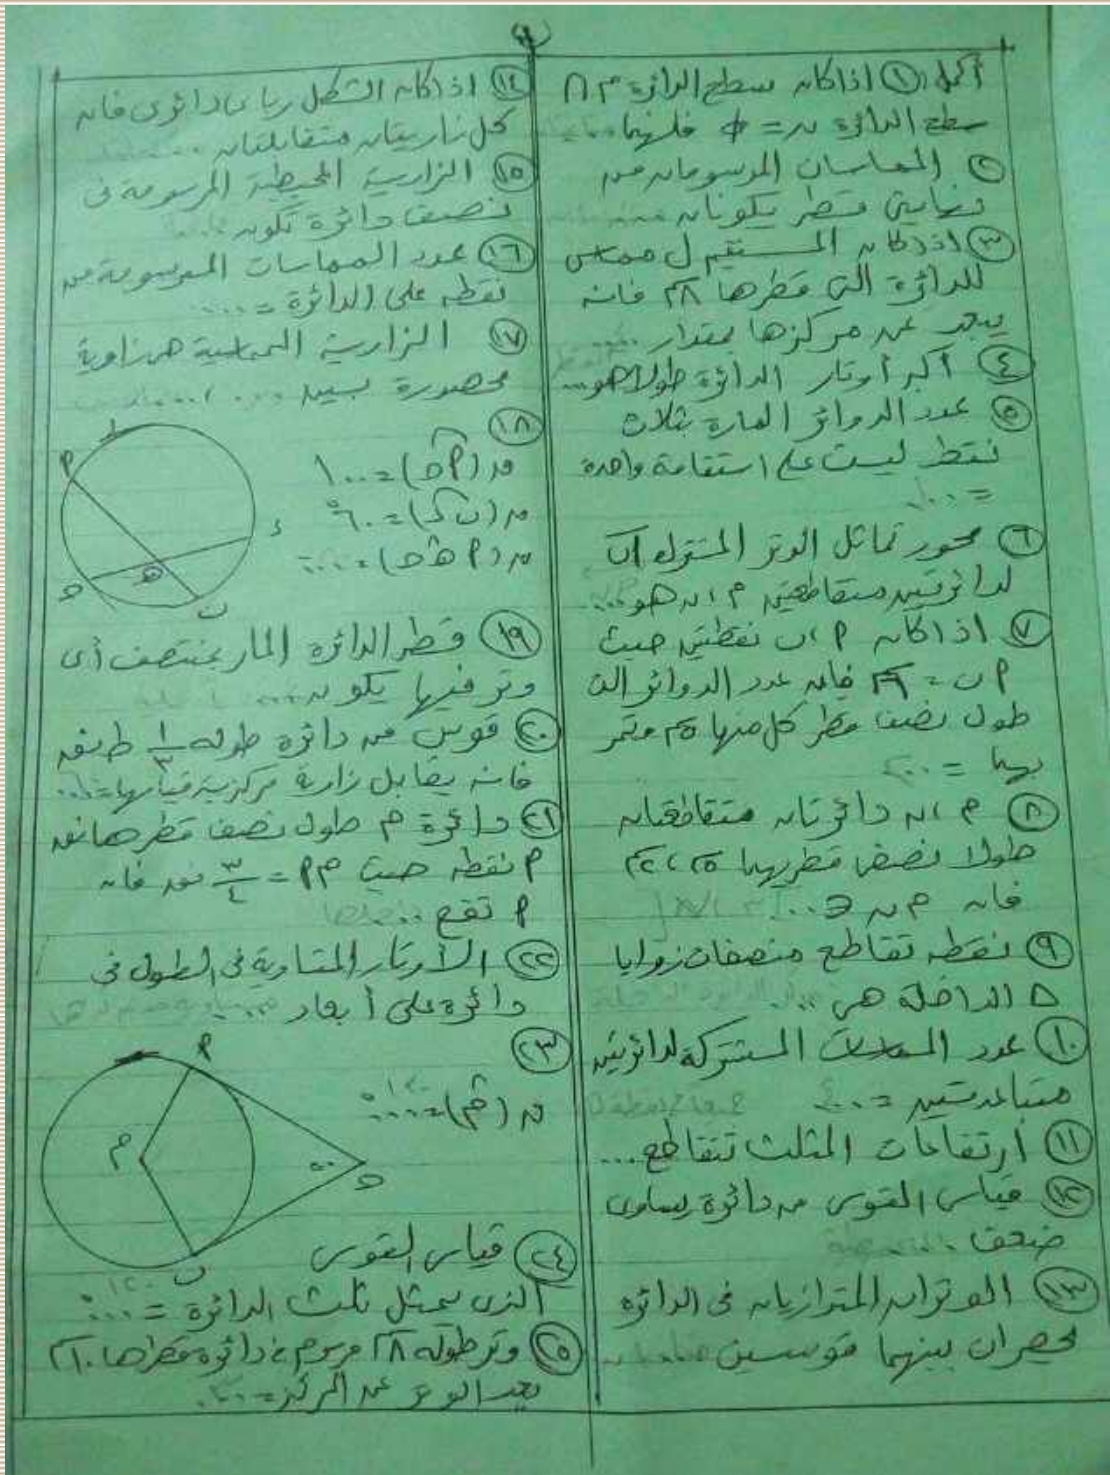 أكمل: ① اذا كان سطح الدائرة م ∩
سطح الدائرة ن = ϕ فإنهما
② المماسان المرسومان من
نهايتى قطر يكونان
③ اذا كان المستقيم ل مماس
للدائرة التى قطرها ٨سم فانه
يبعد عن مركزها بمقدار ...
④ أكبر أوتار الدائرة طولا هو...
⑤ عدد الدوائر المارة بثلاث
نقط ليست على استقامة واحدة
= ...
⑥ محور تماثل الوتر المشترك أب
لدائرتين متقاطعتين م ، ن هو ...
⑦ اذا كان م ، ب نقطتين حيث
م ب = ٦سم فإن عدد الدوائر التى
طول نصف قطر كل منها ٥سم وتمر
بهما = ...
⑧ م ، ن دائرتان متقاطعتان
طولا نصف قطريهما ٥سم ، ٢سم
فان م ن ∈ ...
⑨ نقطه تقاطع منصفات زوايا
△ الداخلة هى ...
⑩ عدد المماسات المشتركة لدائرتين
متباعدتين = ...
⑪ ارتفاعات المثلث تتقاطع ...
⑫ قياس القوس من دائرة يساوى
ضعف
⑬ الوتران المتوازيان فى الدائره
يحصران بينهما قوسين
⑭ اذا كان الشكل رباعى دائرى فان
كل زاويتان متقابلتان
⑮ الزاوية المحيطية المرسومة فى
نصف دائرة تكون
⑯ عدد المماسات المرسومة من
نقطه على الدائرة = ...
⑰ الزاوية المماسية هى زاوية
محصورة بين
⑱
ق (م ح) = ١٠٠
ق (ب د) = ٦٠°
ق (م ه ح) = ...°
م
د
ه
ح
ب
⑲ قطر الدائرة المار بمنتصف أى
وتر فيها يكون
⑳ قوس من دائرة طوله ١/٣ ط نق
فانه يقابل زاوية مركزية قياسها = ...
㉑ دائرة م طول نصف قطرها نق
م نقطه حيث م م = ٣/٤ نق فان
م تقع ...
㉒ الأوتار المتساوية فى الطول فى
دائرة على أبعاد
㉓
ق (م) = ...°
م
م
٥٠
ح
ب
㉔ قياس القوس
الذى يمثل ثلث الدائرة = ...°
㉕ وتر طوله ٨سم مرسوم فى دائرة قطرها ١٠سم
بعد الوتر عن المركز = ...